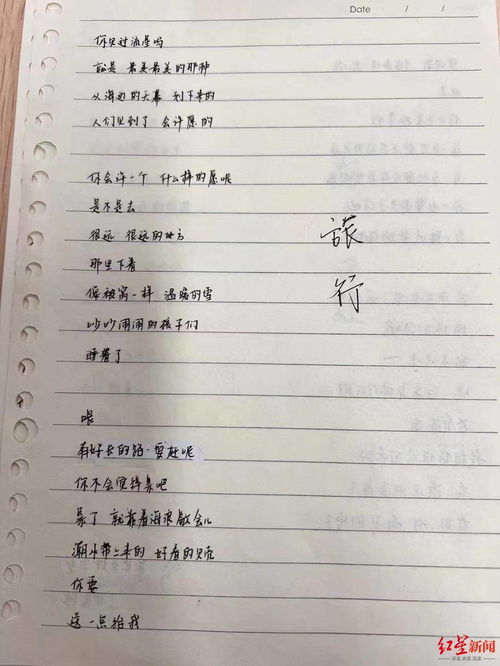 Date / /
你见过流星吗
就是 最美最美的那种
从海边的天幕 划下来的
人们见到了 会许愿的
你会许一个 什么样的愿呢
是不是去
很远 很远的地方
那里下着
像被窝一样 温暖的雪
吵吵闹闹的孩子们
睡着了
張
行
喂
有好长的路 要赶呢
你不会觉得累吧
累了 就靠着海浪歇会儿
潮水带上来的 好看的贝壳
你要
送一点给我
红星新闻
深度 态度 温度